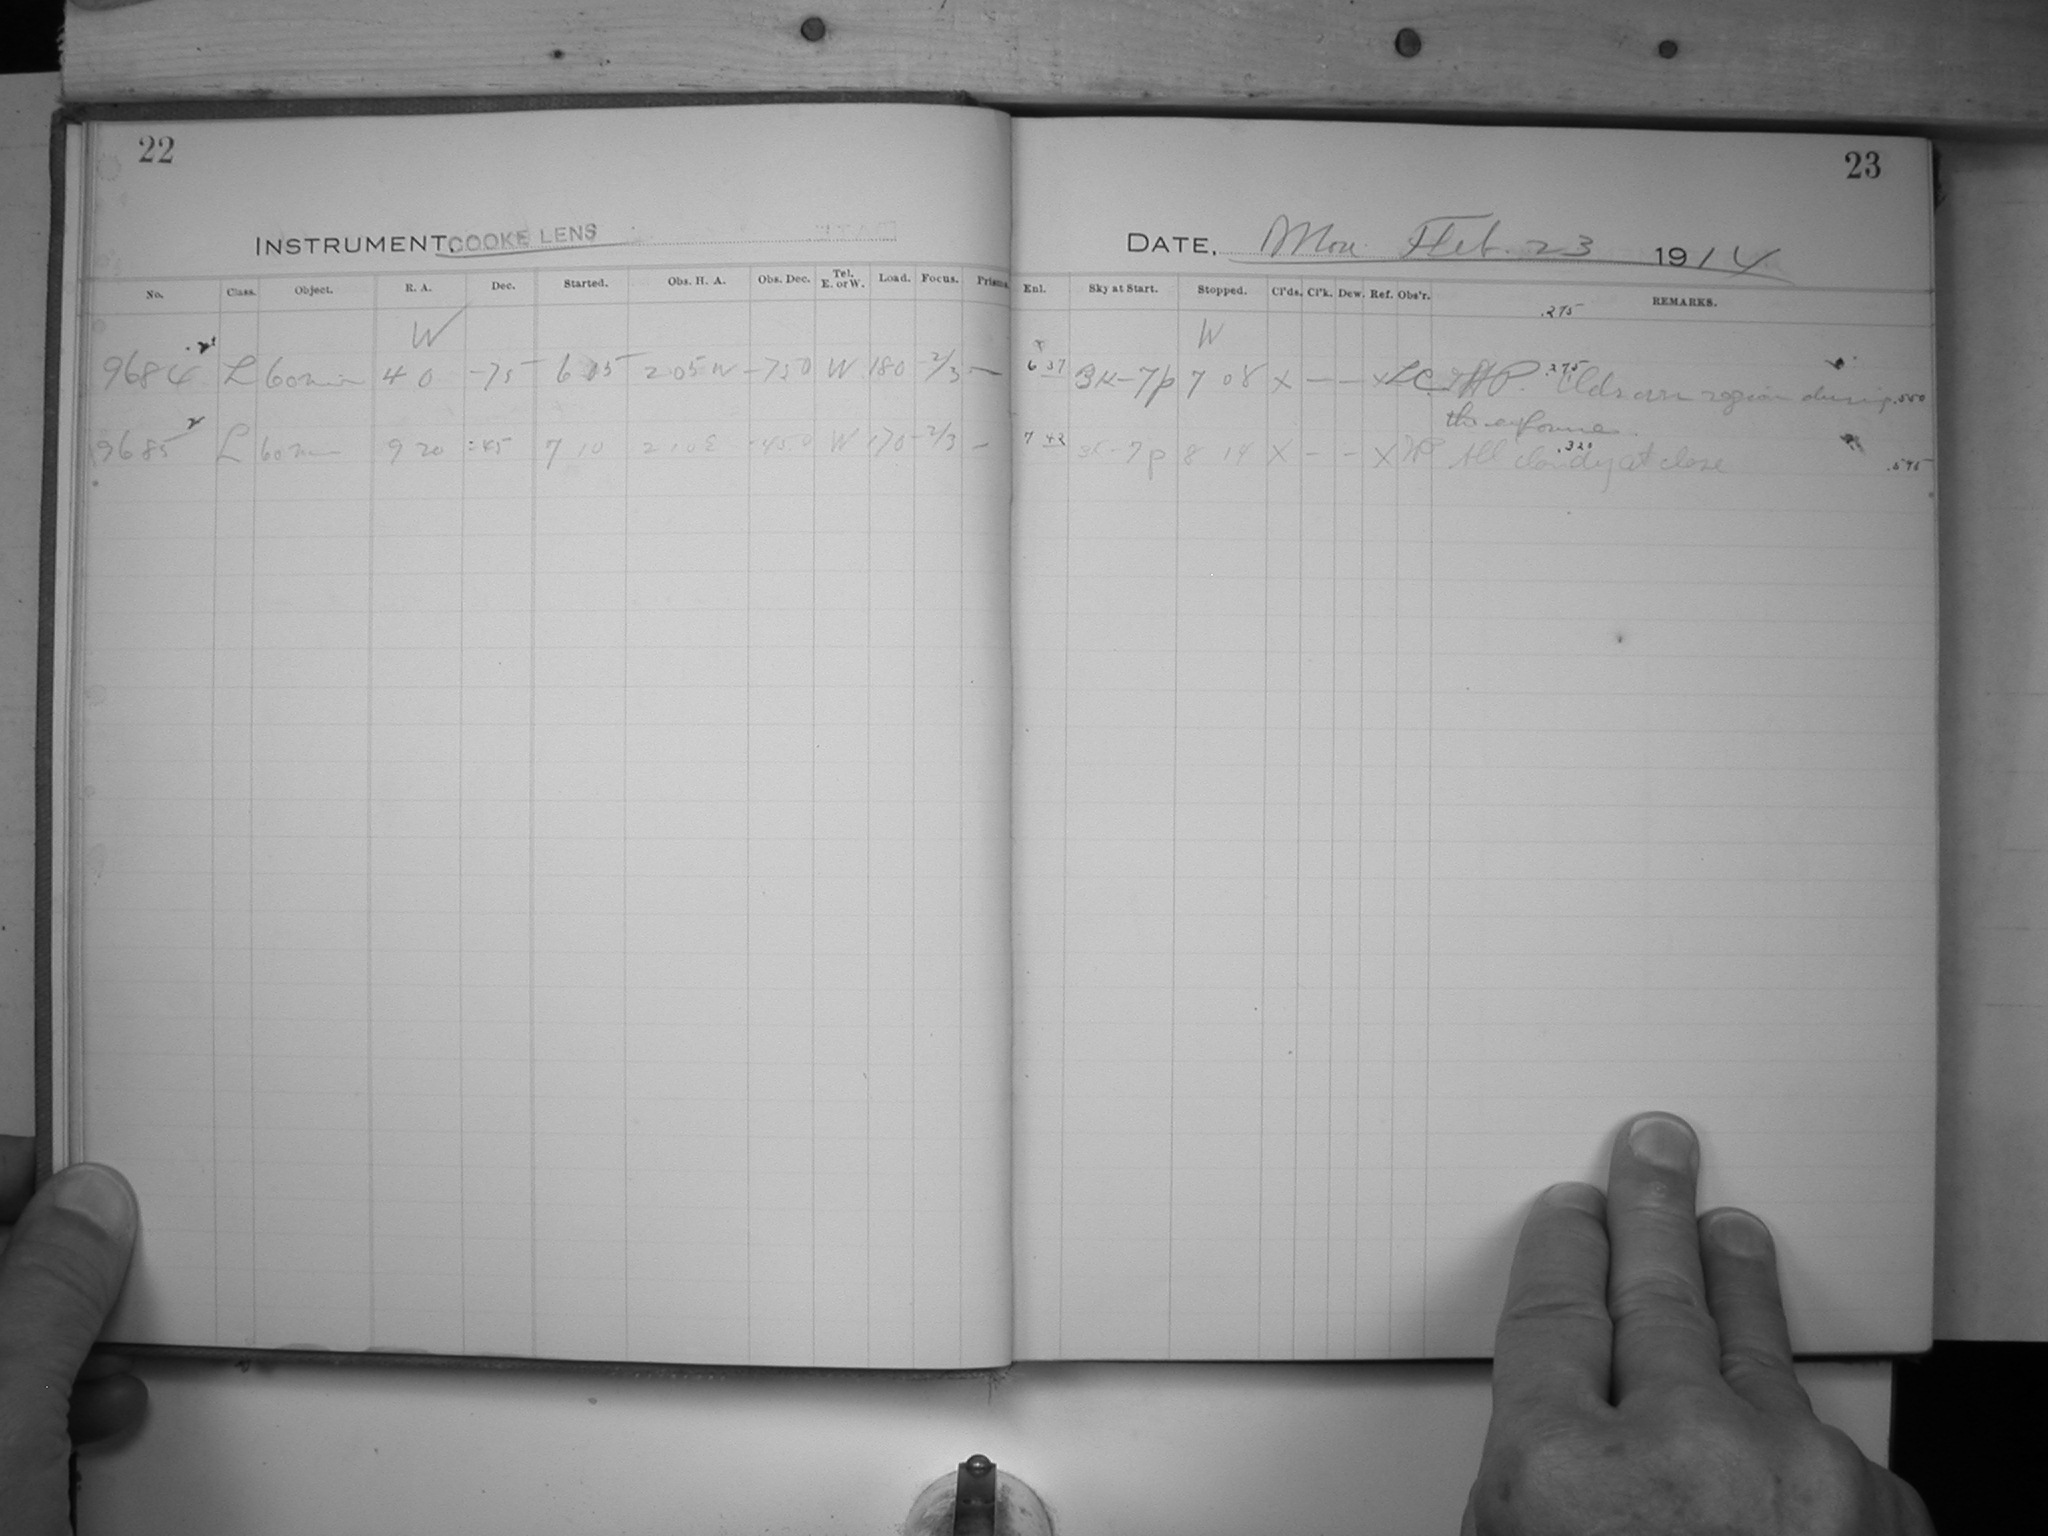 22
23
INSTRUMENT, COOKE LENS
DATE, Mon Feb. 23 1914
No. Class. Object. R. A. Dec. Started. Obs. H. A. Obs. Dec. Tel. E. or W. Load. Focus. Prisms. Enl. Sky at Start. Stopped. Cl'ds. Cl'k. Dew. Ref. Obs'r. REMARKS.
.275
W W
9684 L 60 min 4 0 -75 6 05 2 05 W -75 0 W 180 -2/3 — 6 37 7p 7 08 X — — X LC .275 Clds over region during .550
the exposure.
9685 L 60 min 9 20 -45 7 10 2 10 E -45 0 W 170 -2/3 — 7 42 7p 8 14 X - - X All cloudy at close .320 .595